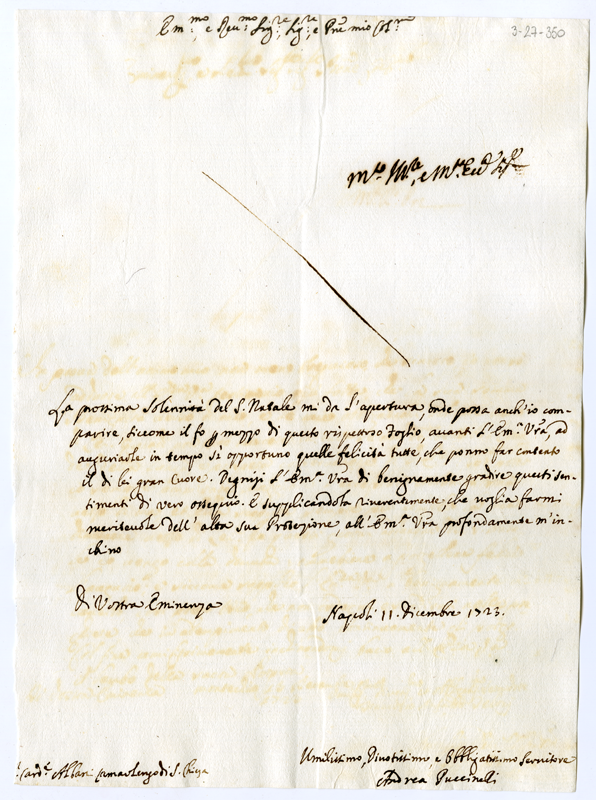 Em.mo e Rev.mo Sig.re, Sig.re e Pne mio Col.mo
3-27-350
La prossima Solennità del S. Natale mi da l'apertura onde possa anch'io com-
parire, siccome il fo p mezzo di questo rispettoso Foglio, avanti l'Em.a Vra, ad
augurarle in tempo sì opportuno quelle felicità tutte, che ponno far contento
il di lei gran Cuore. Degnisi l'Em.a Vra di benignamente gradire questi sen-
timenti di vero ossequio. E supplicandola riverentemente, che voglia farmi
meritevole dell'alta sua Protezione, all'Em.a Vra profondamente m'in-
chino
Di Vostra Eminenza
Napoli 11. Dicembre 1723.
Umilissimo, Divotissimo, e Obbligatissimo Servitore
Andrea Puccinelli
Card.l Albani Camarlengo di S. Chiesa